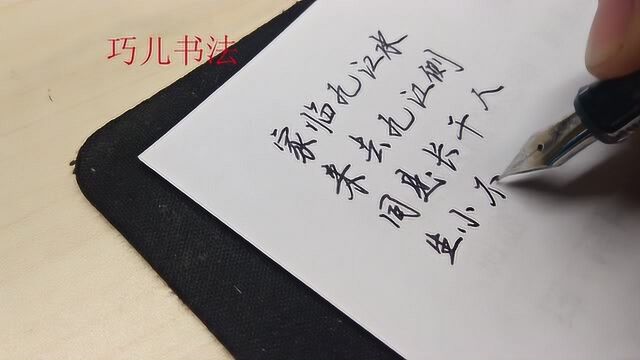 巧儿书法
家临九江水
来去九江侧
同是长干人
生小不